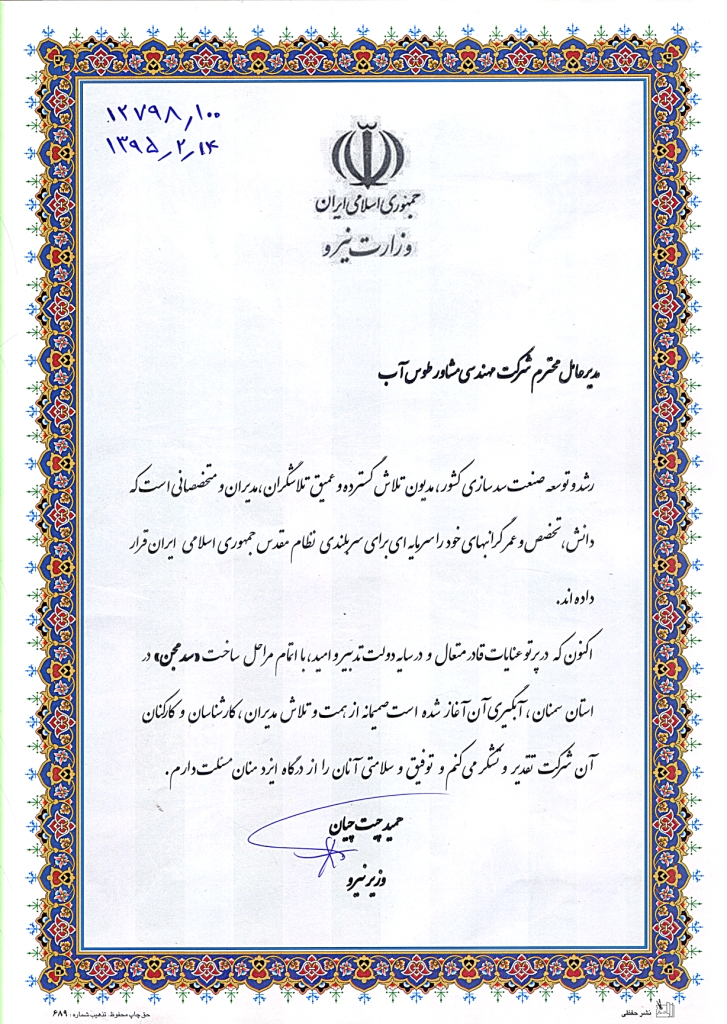 ۱۲۷۹۸٫۱۰۰
۱۳۹۵٫۲٫۱۴
جمهوری اسلامی ایران
وزارت نیرو
مدیرعامل محترم شرکت مهندسی مشاور طوس آب
رشد و توسعه صنعت سد سازی کشور، مدیون تلاش گسترده و عمیق تلاشگران، مدیران و متخصصانی است که
دانش، تخصص و عمر گرانبهای خود را سرمایه ای برای سربلندی نظام مقدس جمهوری اسلامی ایران قرار
داده اند.
اکنون که در پرتو عنایات قادر متعال و در سایه دولت تدبیر و امید، با اتمام مراحل ساخت «سد مجن» در
استان سمنان، آبگیری آن آغاز شده است صمیمانه از همت و تلاش مدیران، کارشناسان و کارکنان
آن شرکت تقدیر و تشکر می کنم و توفیق و سلامتی آنان را از درگاه ایزد منان مسئلت دارم.
حمید چیت چیان
وزیر نیرو
نشر حفظی
حق چاپ محفوظ. تذهیب شماره: ۶۸۹